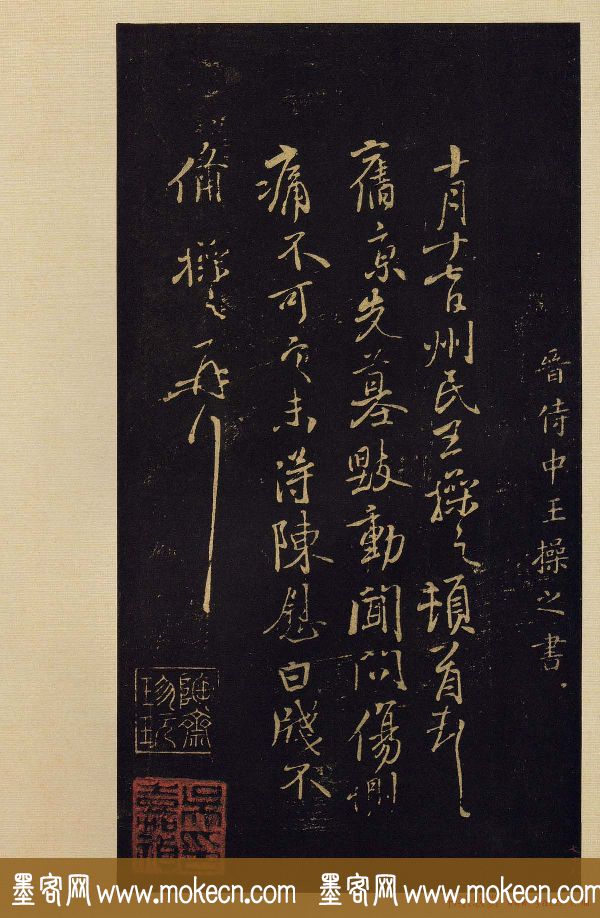 晉侍中王操之書
十月十七日州民王操之頓首
舊京先墓毀動聞問傷惻
痛不可言未得陳慰白牋不
備操之再拜
墨客网 www.mokecn.com 墨客网 www.mokecn.com